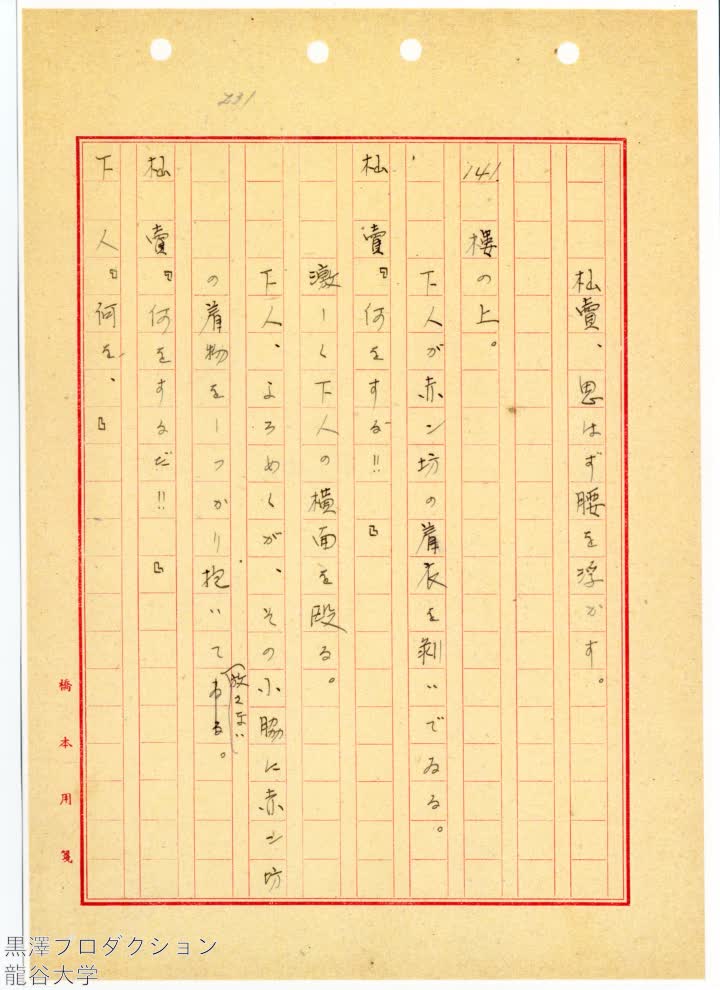 231
杣賣、思はず腰を浮かす。
141. 樓の上。
下人が赤ン坊の着衣を剥いでゐる。
杣賣『何をする!!』
激しく下人の横面を殴る。
下人、よろめくが、その小脇に赤ン坊
の着物をしつかり抱いてゐる。
放さない
杣賣『何をするだ!!』
下人『何を、』
橋本用箋
黒澤プロダクション
龍谷大学